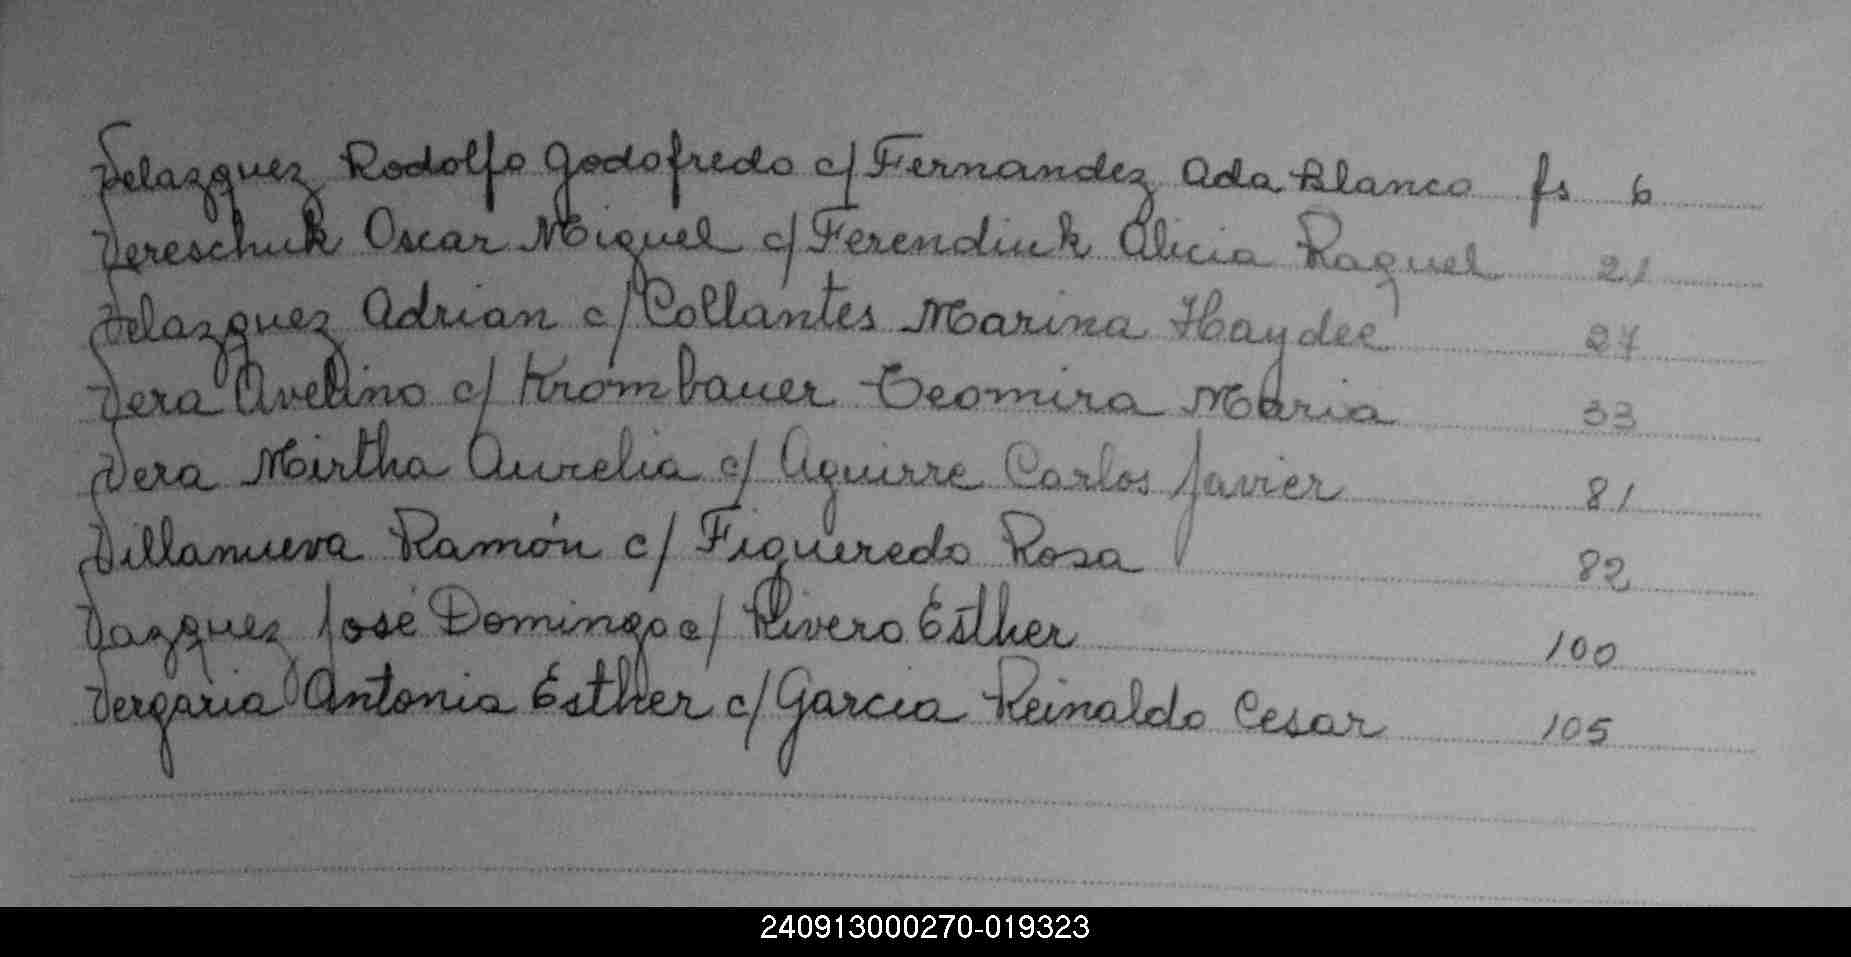 Velazquez Rodolfo Godofredo c/ Fernandez Ada Blanca fs 6
Vereschuk Oscar Miguel c/ Ferendiuk Alicia Raquel 21
Velazquez Adrian c/ Collantes Marina Haydeé 27
Vera Avelino c/ Krombauer Teomira Maria 33
Vera Mirtha Aurelia c/ Aguirre Carlos Javier 81
Villanueva Ramón c/ Figueredo Rosa 82
Vazquez José Domingo c/ Rivero Esther 100
Vergaria Antonia Esther c/ Garcia Reinaldo Cesar 105
240913000270-019323